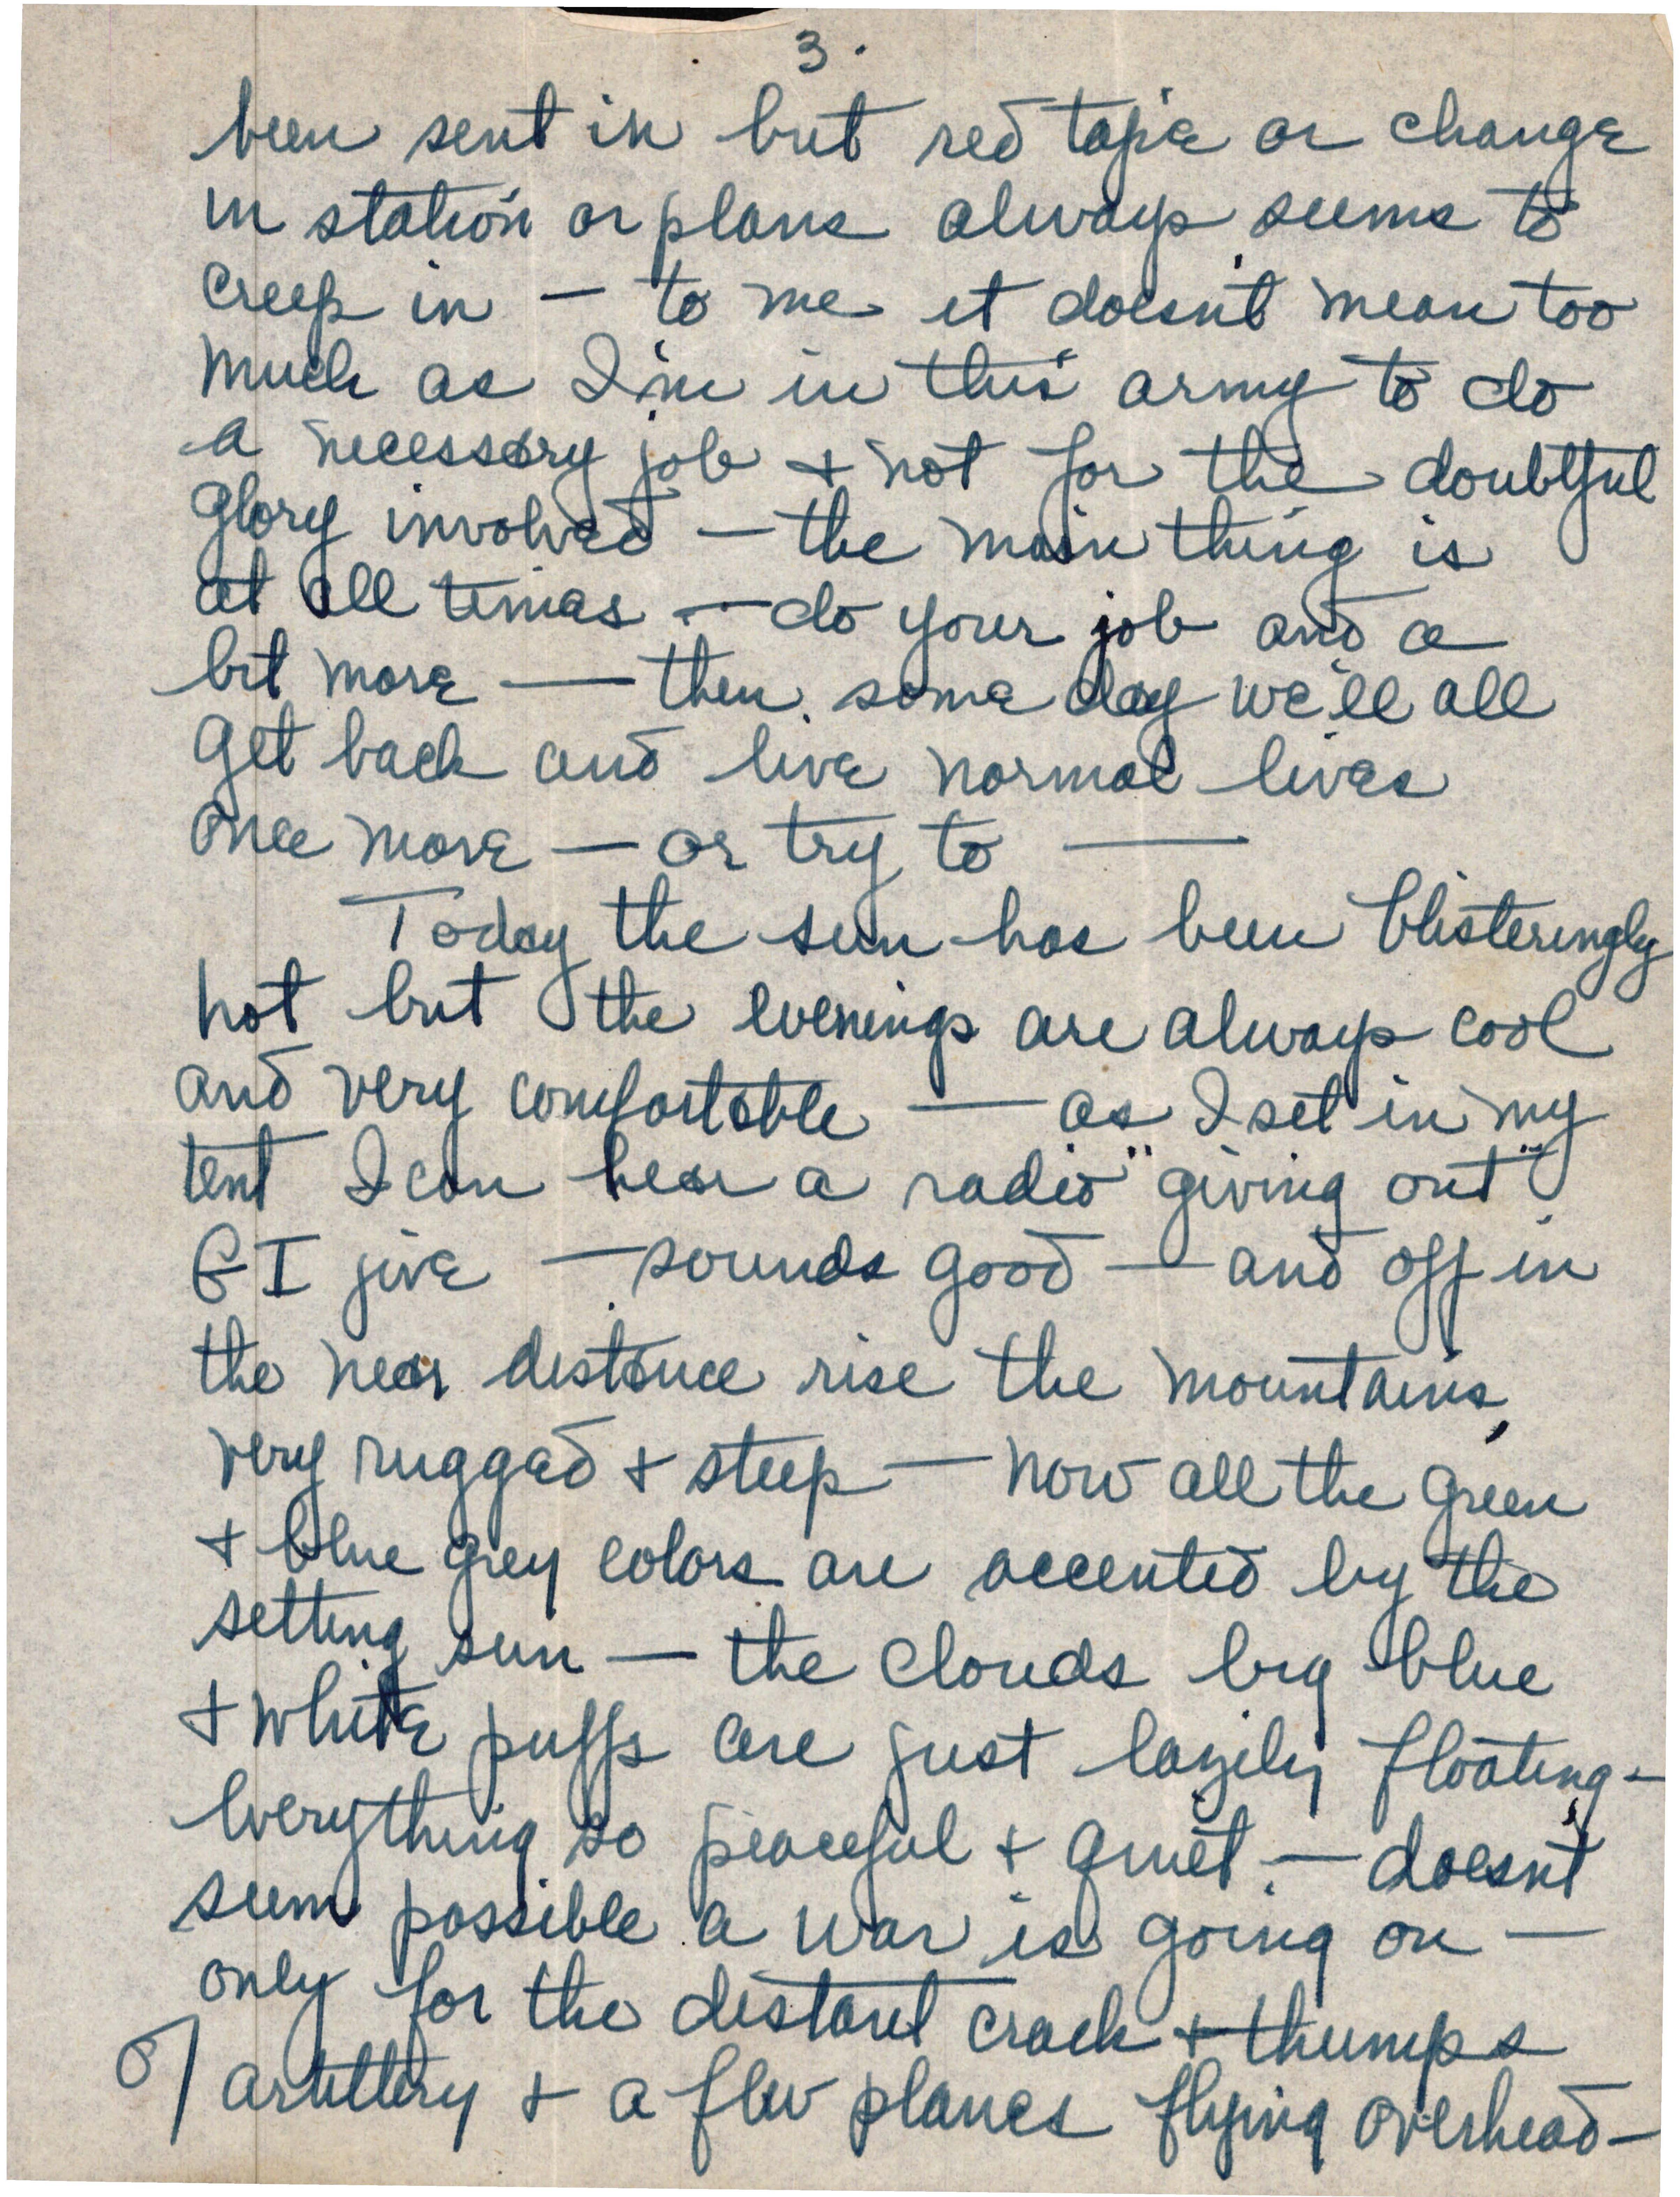 3.
been sent in but red tape or change
in station or plans always seems to
creep in — to me it doesn't mean too
much as I'm in this army to do
a necessary job + not for the doubtful
glory involved — the main thing is
at all times — do your job and a
bit more — then some day we'll all
get back and live normal lives
once more — or try to —
Today the sun has been blisteringly
hot but the evenings are always cool
and very comfortable — as I set in my
tent I can hear a radio "giving out"
GI jive — sounds good — and off in
the near distance rise the mountains,
very rugged + steep — now all the green
+ blue grey colors are accented by the
setting sun — the clouds big blue
+ white puffs are just lazily floating —
everything so peaceful + quiet — doesn't
seem possible a war is going on —
only for the distant crack + thumps
of artillery + a few planes flying overhead —